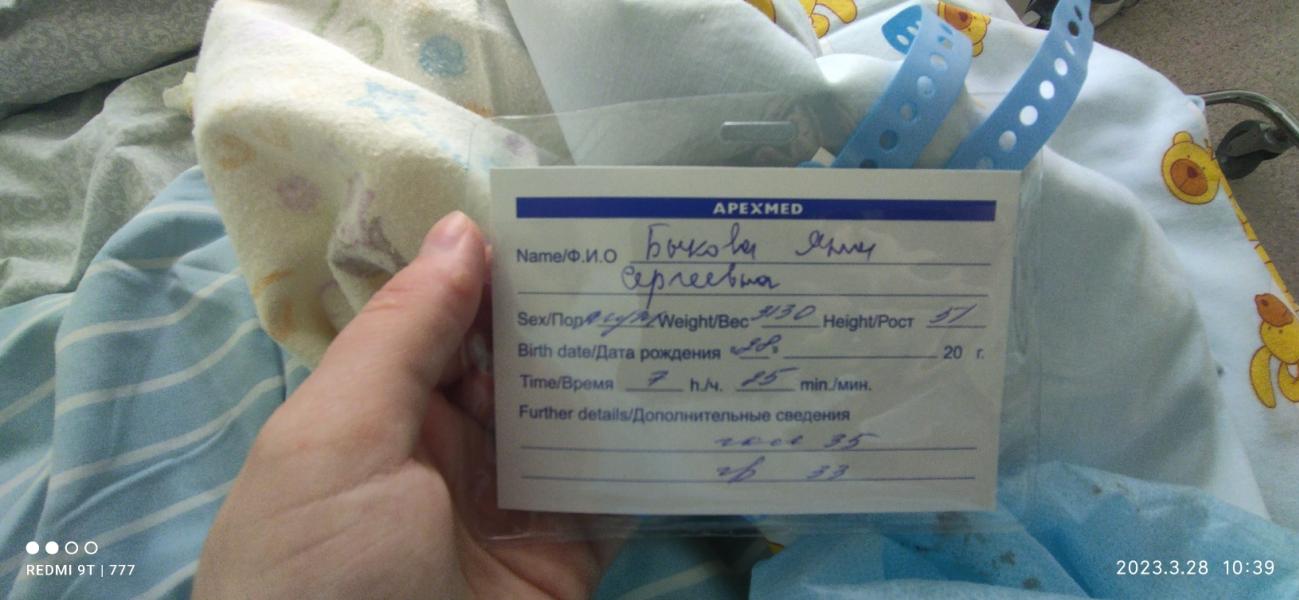 APEXMED
Name/Ф.И.О Быкова Яна
Сергеевна
Sex/Пол Weight/Вес 3130 Height/Рост 51
Birth date/Дата рождения 28. 20 г.
Time/Время 7 h./ч. 25 min./мин.
Further details/Дополнительные сведения
35
гр 33
REDMI 9T | 777
2023.3.28 10:39